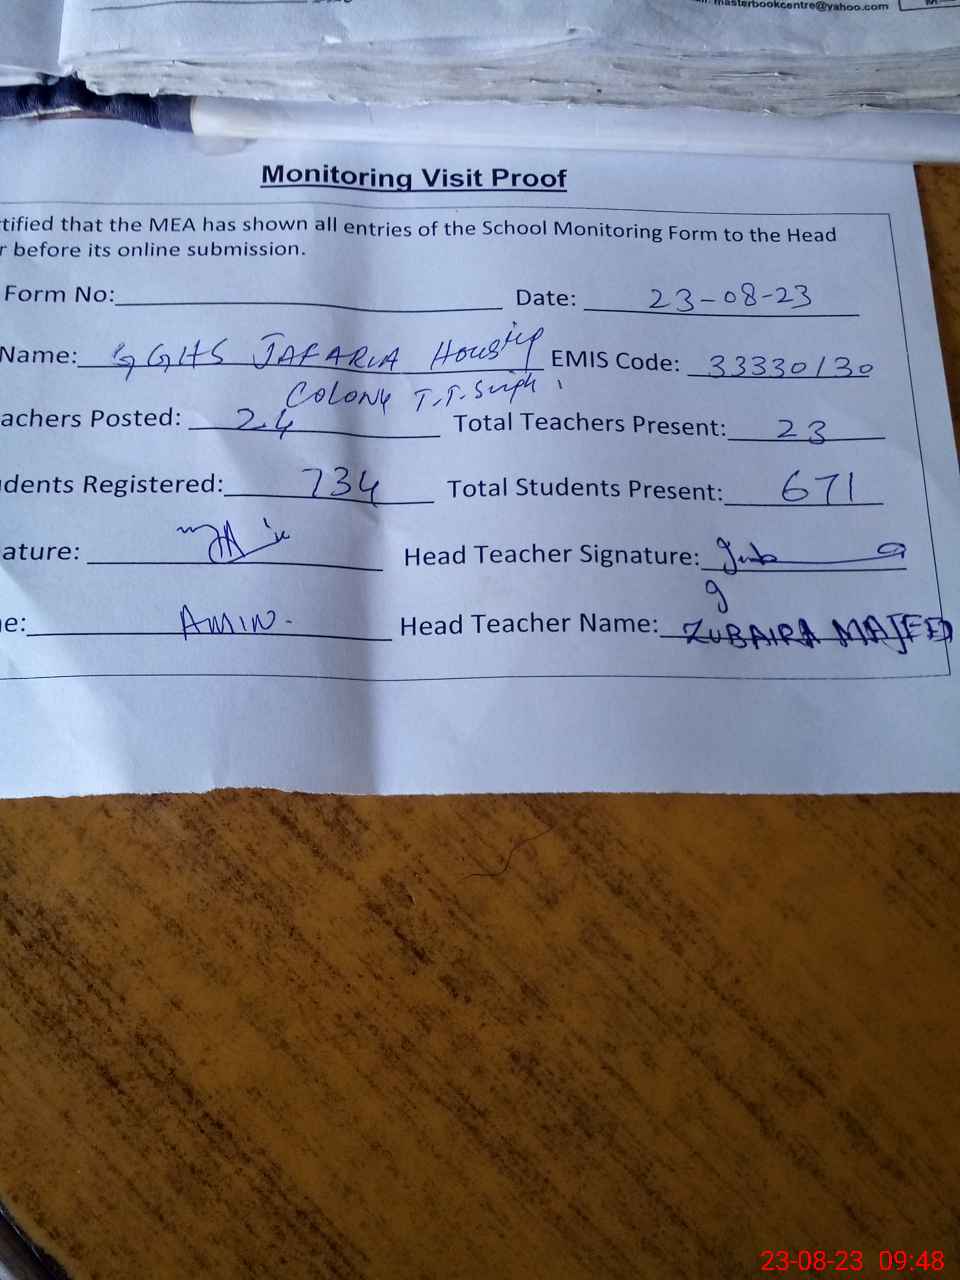 masterbookcentre@yahoo.com
Monitoring Visit Proof
tified that the MEA has shown all entries of the School Monitoring Form to the Head
r before its online submission.
Form No: Date: 23-08-23
Name: GGHS JAFARIA Housing EMIS Code: 33330130
Colony T.T.Singh
achers Posted: 24 Total Teachers Present: 23
dents Registered: 734 Total Students Present: 671
ature: Head Teacher Signature:
e: AMIN. Head Teacher Name: ZUBAIRA MAJEED
23-08-23 09:48